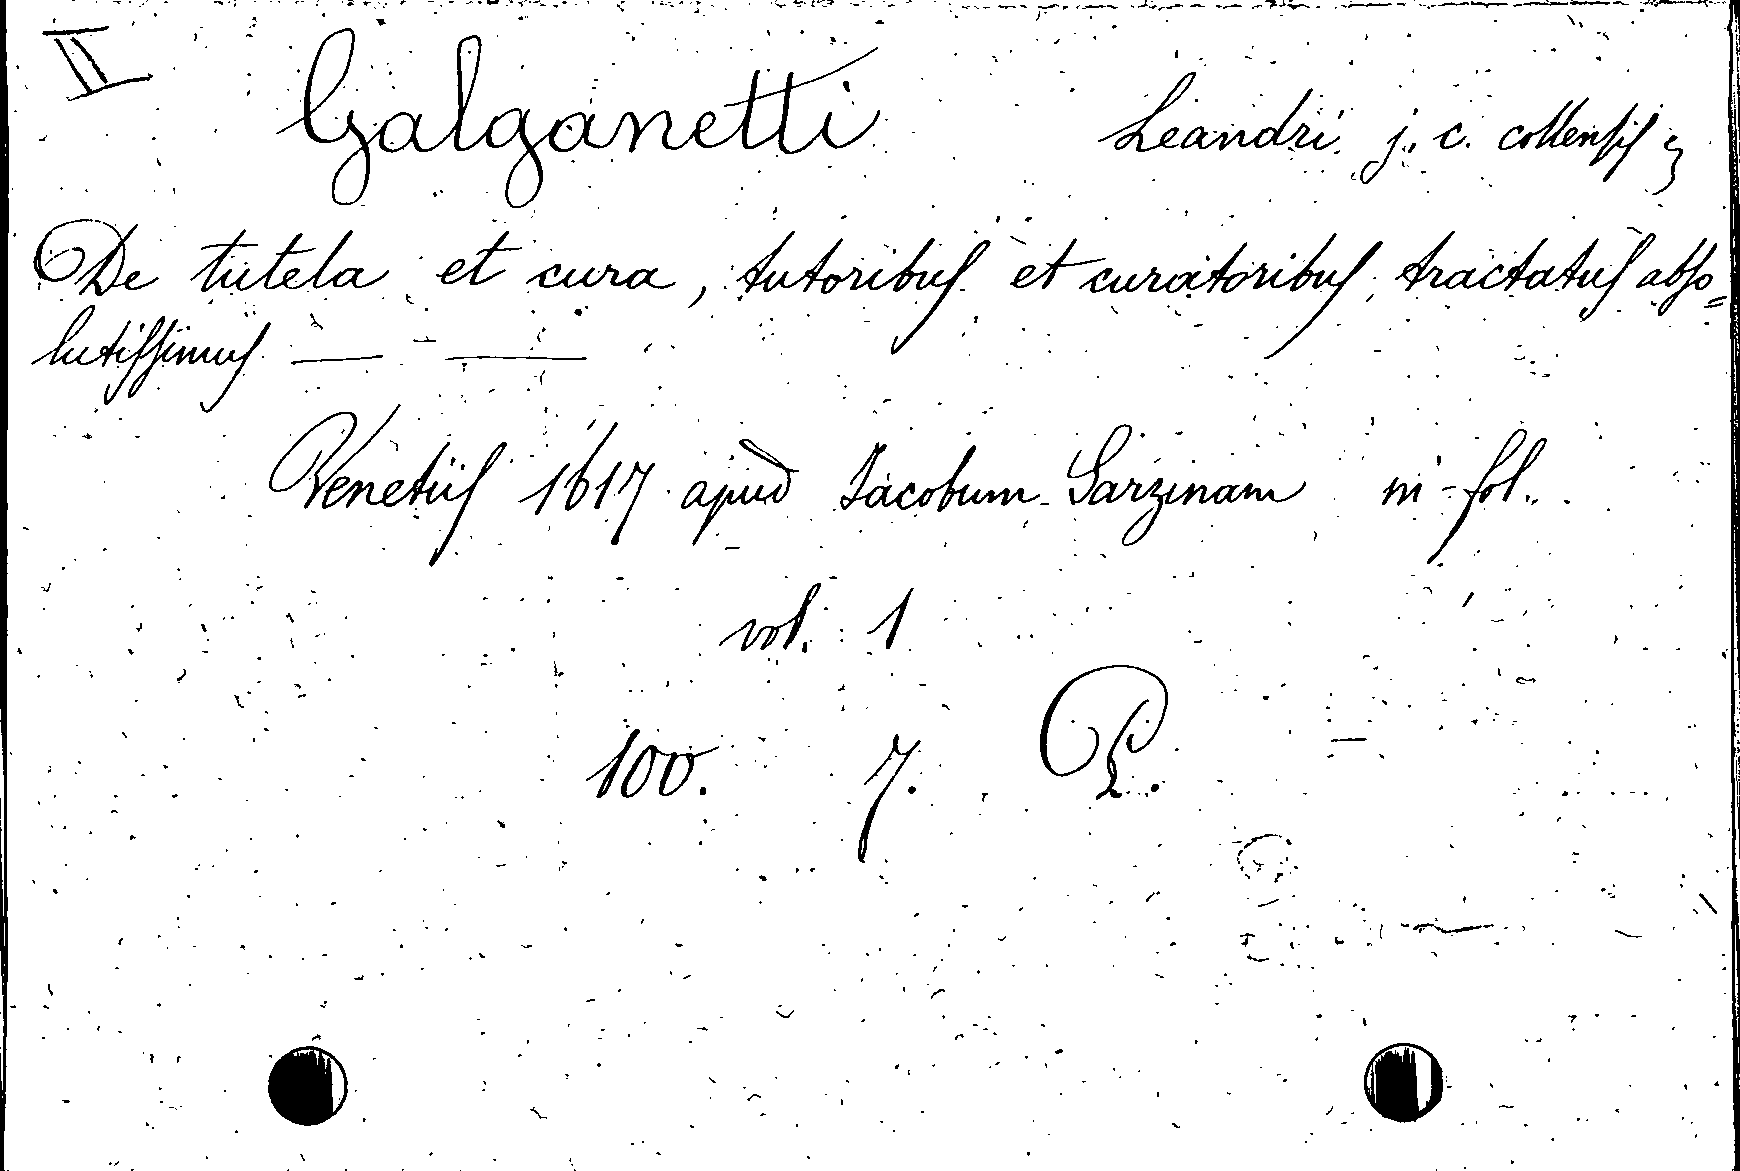 II Galganetti Leandri j. c. collensis
De tutela et cura, tutoribus et curatoribus, tractatus abso=
lutissimus — —
Venetiis 1617 apud Jacobum Sarzinam in-fol.
vol. 1
100. 7. P.